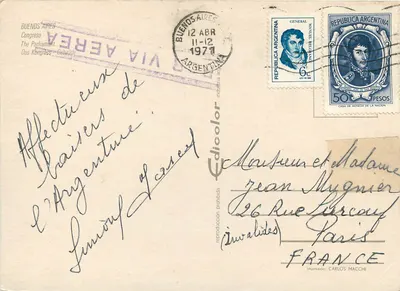 BUENOS AIRES
Congreso
The Parliament
VIA AEREA
BUENOS AIRES
12 ABR
11-12
1971
ARGENTINA
REPUBLICA ARGENTINA
GENERAL
MANUEL BELGRANO
6
REPUBLICA ARGENTINA
50 PESOS
Affectueux
baisers de
l'Argentine.
Simone
Edicolor
Monsieur et Madame
Jean Mygnier
26 Rue Surcouf
(Invalides) Paris
FRANCE
CARLOS MACCHI